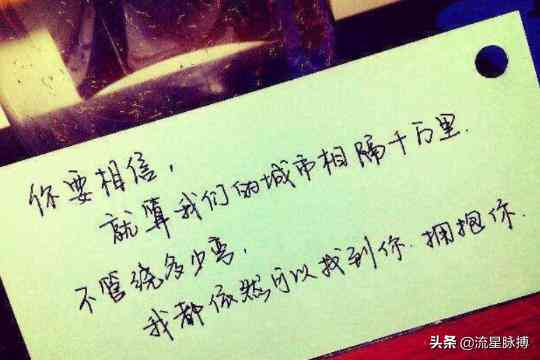 你要相信，
就算我们的城市相隔千万里.
不管绕多少弯，
我都依然可以找到你.拥抱你.
头条 @流星脉搏